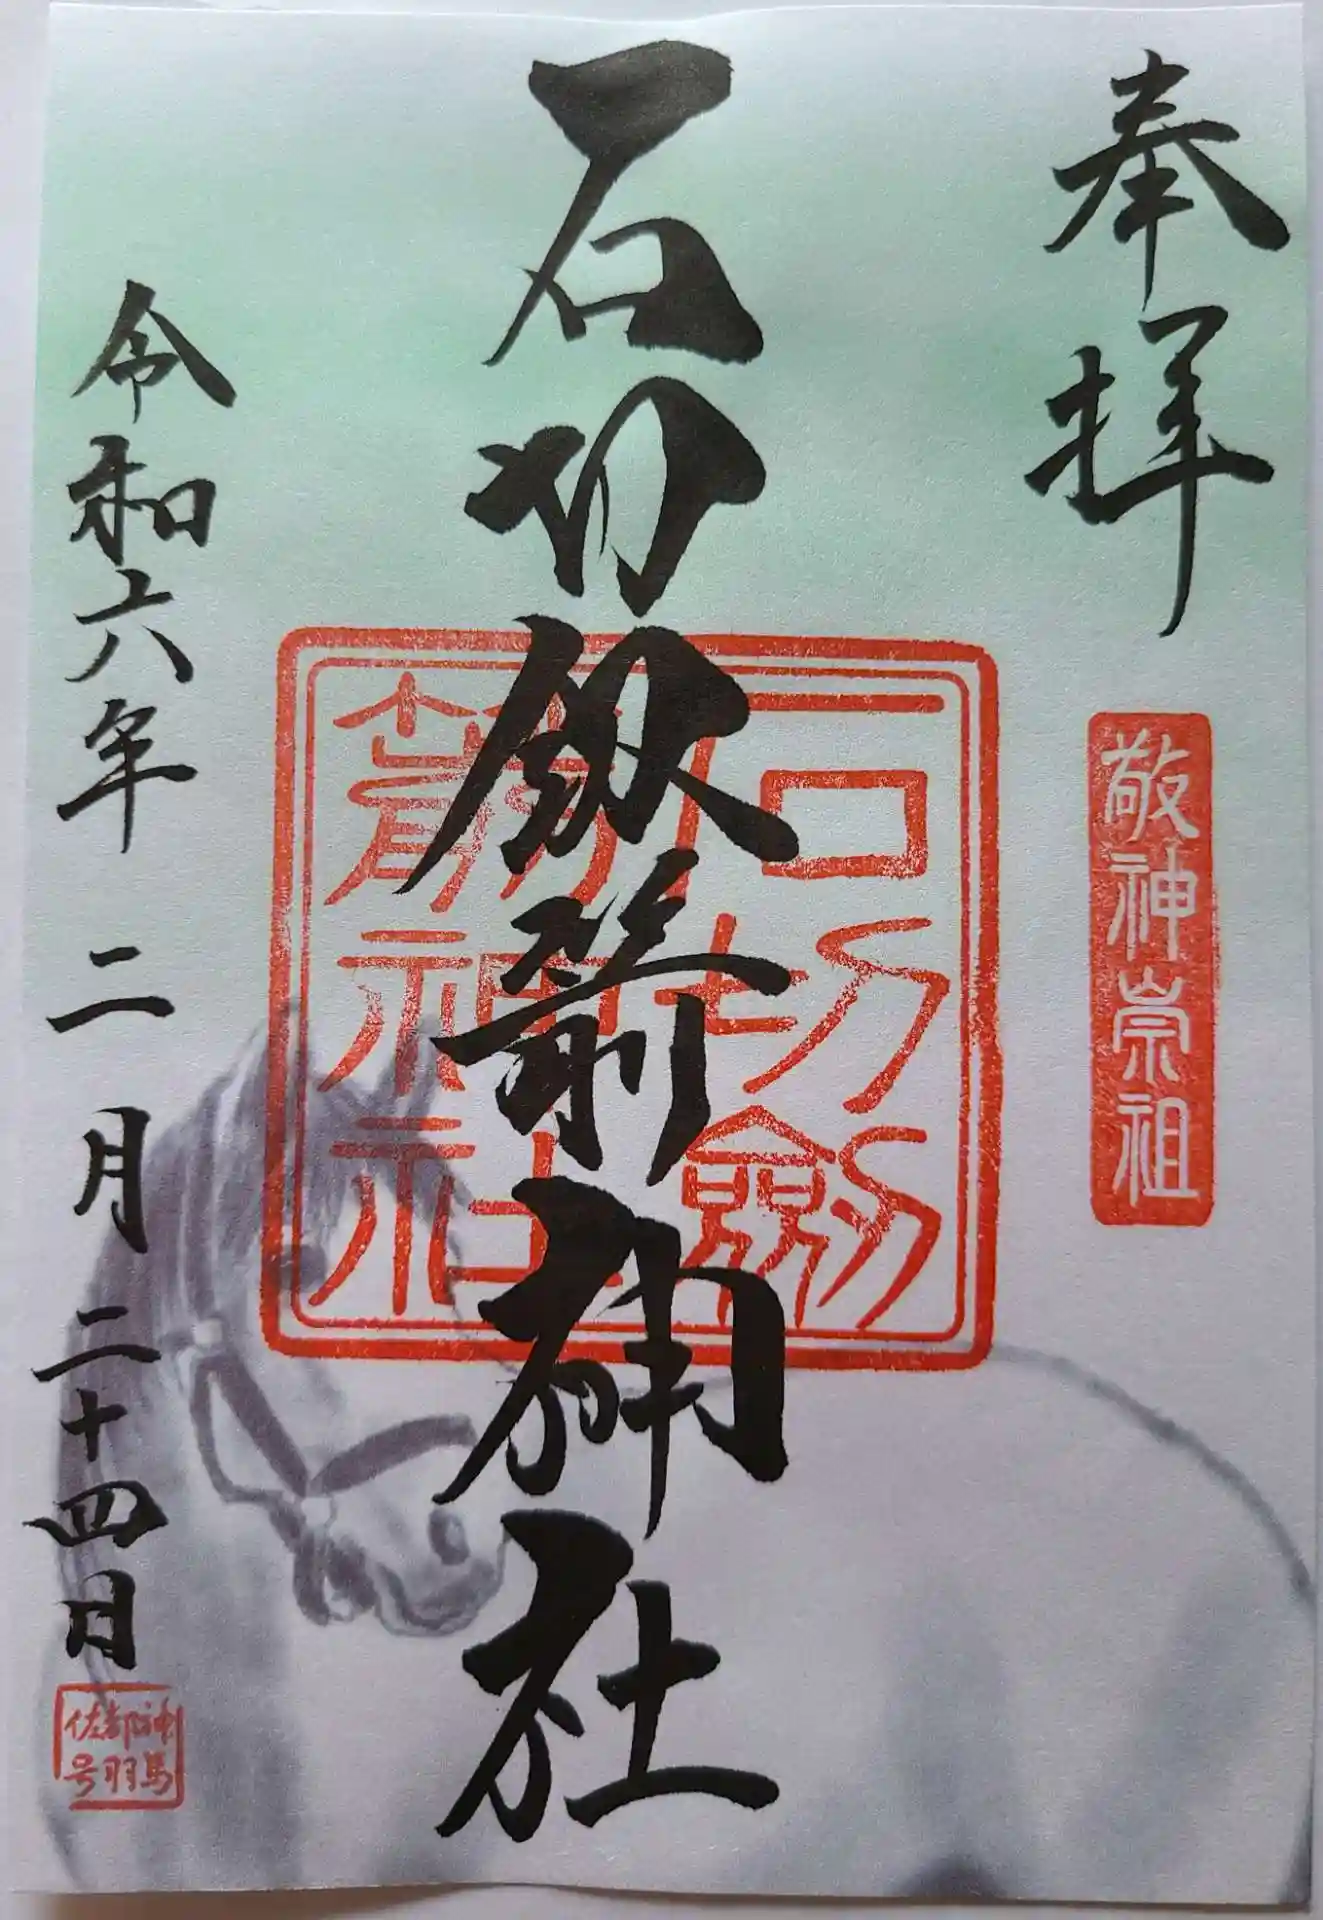 奉拝
敬神崇祖
石切劔箭神社
石切劔
箭神社
令和六年 二月 二十四日
神馬
都羽
佐号